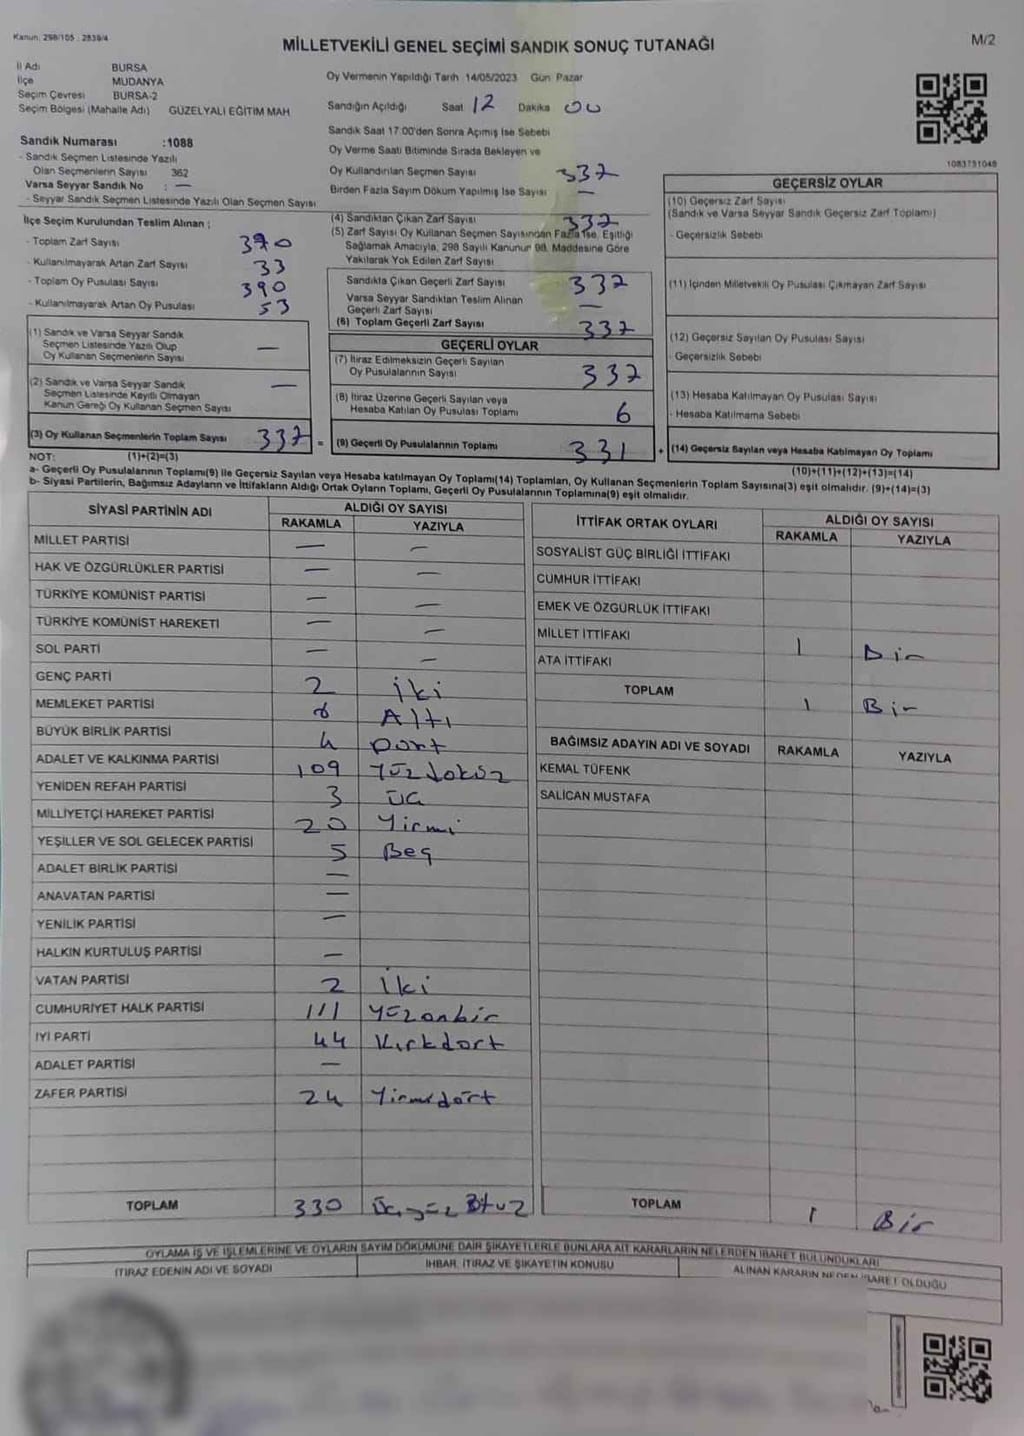 Kanun: 298/105 . 2839/4
MİLLETVEKİLİ GENEL SEÇİMİ SANDIK SONUÇ TUTANAĞI
M/2
İl Adı BURSA
İlçe MUDANYA
Seçim Çevresi BURSA-2
Seçim Bölgesi (Mahalle Adı) GÜZELYALI EĞİTİM MAH
Oy Vermenin Yapıldığı Tarih 14/05/2023 Gün Pazar
Sandığın Açıldığı Saat 12 Dakika 00
Sandık Saat 17:00'den Sonra Açımış İse Sebebi
Oy Verme Saati Bitiminde Sırada Bekleyen ve
Oy Kullandırılan Seçmen Sayısı 337
Birden Fazla Sayım Döküm Yapılmış İse Sayısı —
1083751048
Sandık Numarası :1088
- Sandık Seçmen Listesinde Yazılı
Olan Seçmenlerin Sayısı 362
Varsa Seyyar Sandık No : —
- Seyyar Sandık Seçmen Listesinde Yazılı Olan Seçmen Sayısı
İlçe Seçim Kurulundan Teslim Alınan ;
- Toplam Zarf Sayısı 370
- Kullanılmayarak Artan Zarf Sayısı 33
- Toplam Oy Pusulası Sayısı 390
- Kullanılmayarak Artan Oy Pusulası 53
(1) Sandık ve Varsa Seyyar Sandık
Seçmen Listesinde Yazılı Olup
Oy Kullanan Seçmenlerin Sayısı —
(2) Sandık ve Varsa Seyyar Sandık
Seçmen Listesinde Kayıtlı Olmayan
Kanun Gereği Oy Kullanan Seçmen Sayısı —
(3) Oy Kullanan Seçmenlerin Toplam Sayısı 337 =
(4) Sandıktan Çıkan Zarf Sayısı 337
(5) Zarf Sayısı Oy Kullanan Seçmen Sayısından Fazla İse, Eşitliği
Sağlamak Amacıyla, 298 Sayılı Kanunun 98. Maddesine Göre
Yakılarak Yok Edilen Zarf Sayısı
Sandıkta Çıkan Geçerli Zarf Sayısı 337
Varsa Seyyar Sandıktan Teslim Alınan
Geçerli Zarf Sayısı —
(6) Toplam Geçerli Zarf Sayısı 337
GEÇERLİ OYLAR
(7) İtiraz Edilmeksizin Geçerli Sayılan
Oy Pusulalarının Sayısı 337
(8) İtiraz Üzerine Geçerli Sayılan veya
Hesaba Katılan Oy Pusulası Toplamı 6
(9) Geçerli Oy Pusulalarının Toplamı 331 +
GEÇERSİZ OYLAR
(10) Geçersiz Zarf Sayısı
(Sandık ve Varsa Seyyar Sandık Geçersiz Zarf Toplamı)
- Geçersizlik Sebebi
(11) İçinden Milletvekili Oy Pusulası Çıkmayan Zarf Sayısı
(12) Geçersiz Sayılan Oy Pusulası Sayısı
- Geçersizlik Sebebi
(13) Hesaba Katılmayan Oy Pusulası Sayısı
- Hesaba Katılmama Sebebi
(14) Geçersiz Sayılan veya Hesaba Katılmayan Oy Toplamı
NOT: (1)+(2)=(3)
(10)+(11)+(12)+(13)=(14)
a- Geçerli Oy Pusulalarının Toplamı(9) ile Geçersiz Sayılan veya Hesaba katılmayan Oy Toplamı(14) Toplamları, Oy Kullanan Seçmenlerin Toplam Sayısına(3) eşit olmalıdır. (9)+(14)=(3)
b- Siyasi Partilerin, Bağımsız Adayların ve İttifakların Aldığı Ortak Oyların Toplamı, Geçerli Oy Pusulalarının Toplamına(9) eşit olmalıdır.
SİYASİ PARTİNİN ADI ALDIĞI OY SAYISI
RAKAMLA YAZIYLA
MİLLET PARTİSİ — —
HAK VE ÖZGÜRLÜKLER PARTİSİ — —
TÜRKİYE KOMÜNİST PARTİSİ — —
TÜRKİYE KOMÜNİST HAREKETİ — —
SOL PARTİ — —
GENÇ PARTİ 2 iki
MEMLEKET PARTİSİ 6 Altı
BÜYÜK BİRLİK PARTİSİ 4 Dört
ADALET VE KALKINMA PARTİSİ 109 Yüzdokuz
YENİDEN REFAH PARTİSİ 3 ÜÇ
MİLLİYETÇİ HAREKET PARTİSİ 20 Yirmi
YEŞİLLER VE SOL GELECEK PARTİSİ 5 Beş
ADALET BİRLİK PARTİSİ —
ANAVATAN PARTİSİ —
YENİLİK PARTİSİ —
HALKIN KURTULUŞ PARTİSİ —
VATAN PARTİSİ 2 iki
CUMHURİYET HALK PARTİSİ 111 Yüzonbir
İYİ PARTİ 44 Kırkdört
ADALET PARTİSİ —
ZAFER PARTİSİ 24 Yirmidört
TOPLAM 330 Üçyüz Otuz
İTTİFAK ORTAK OYLARI ALDIĞI OY SAYISI
RAKAMLA YAZIYLA
SOSYALİST GÜÇ BİRLİĞİ İTTİFAKI
CUMHUR İTTİFAKI
EMEK VE ÖZGÜRLÜK İTTİFAKI
MİLLET İTTİFAKI 1 Bir
ATA İTTİFAKI
TOPLAM 1 Bir
BAĞIMSIZ ADAYIN ADI VE SOYADI RAKAMLA YAZIYLA
KEMAL TÜFENK
SALİCAN MUSTAFA
TOPLAM 1 Bir
OYLAMA İŞ VE İŞLEMLERİNE VE OYLARIN SAYIM DÖKÜMÜNE DAİR ŞİKAYETLERLE BUNLARA AİT KARARLARIN NELERDEN İBARET BULUNDUKLARI
İTİRAZ EDENİN ADI VE SOYADI
İHBAR, İTİRAZ VE ŞİKAYETİN KONUSU
ALINAN KARARIN NEDEN İBARET OLDUĞU